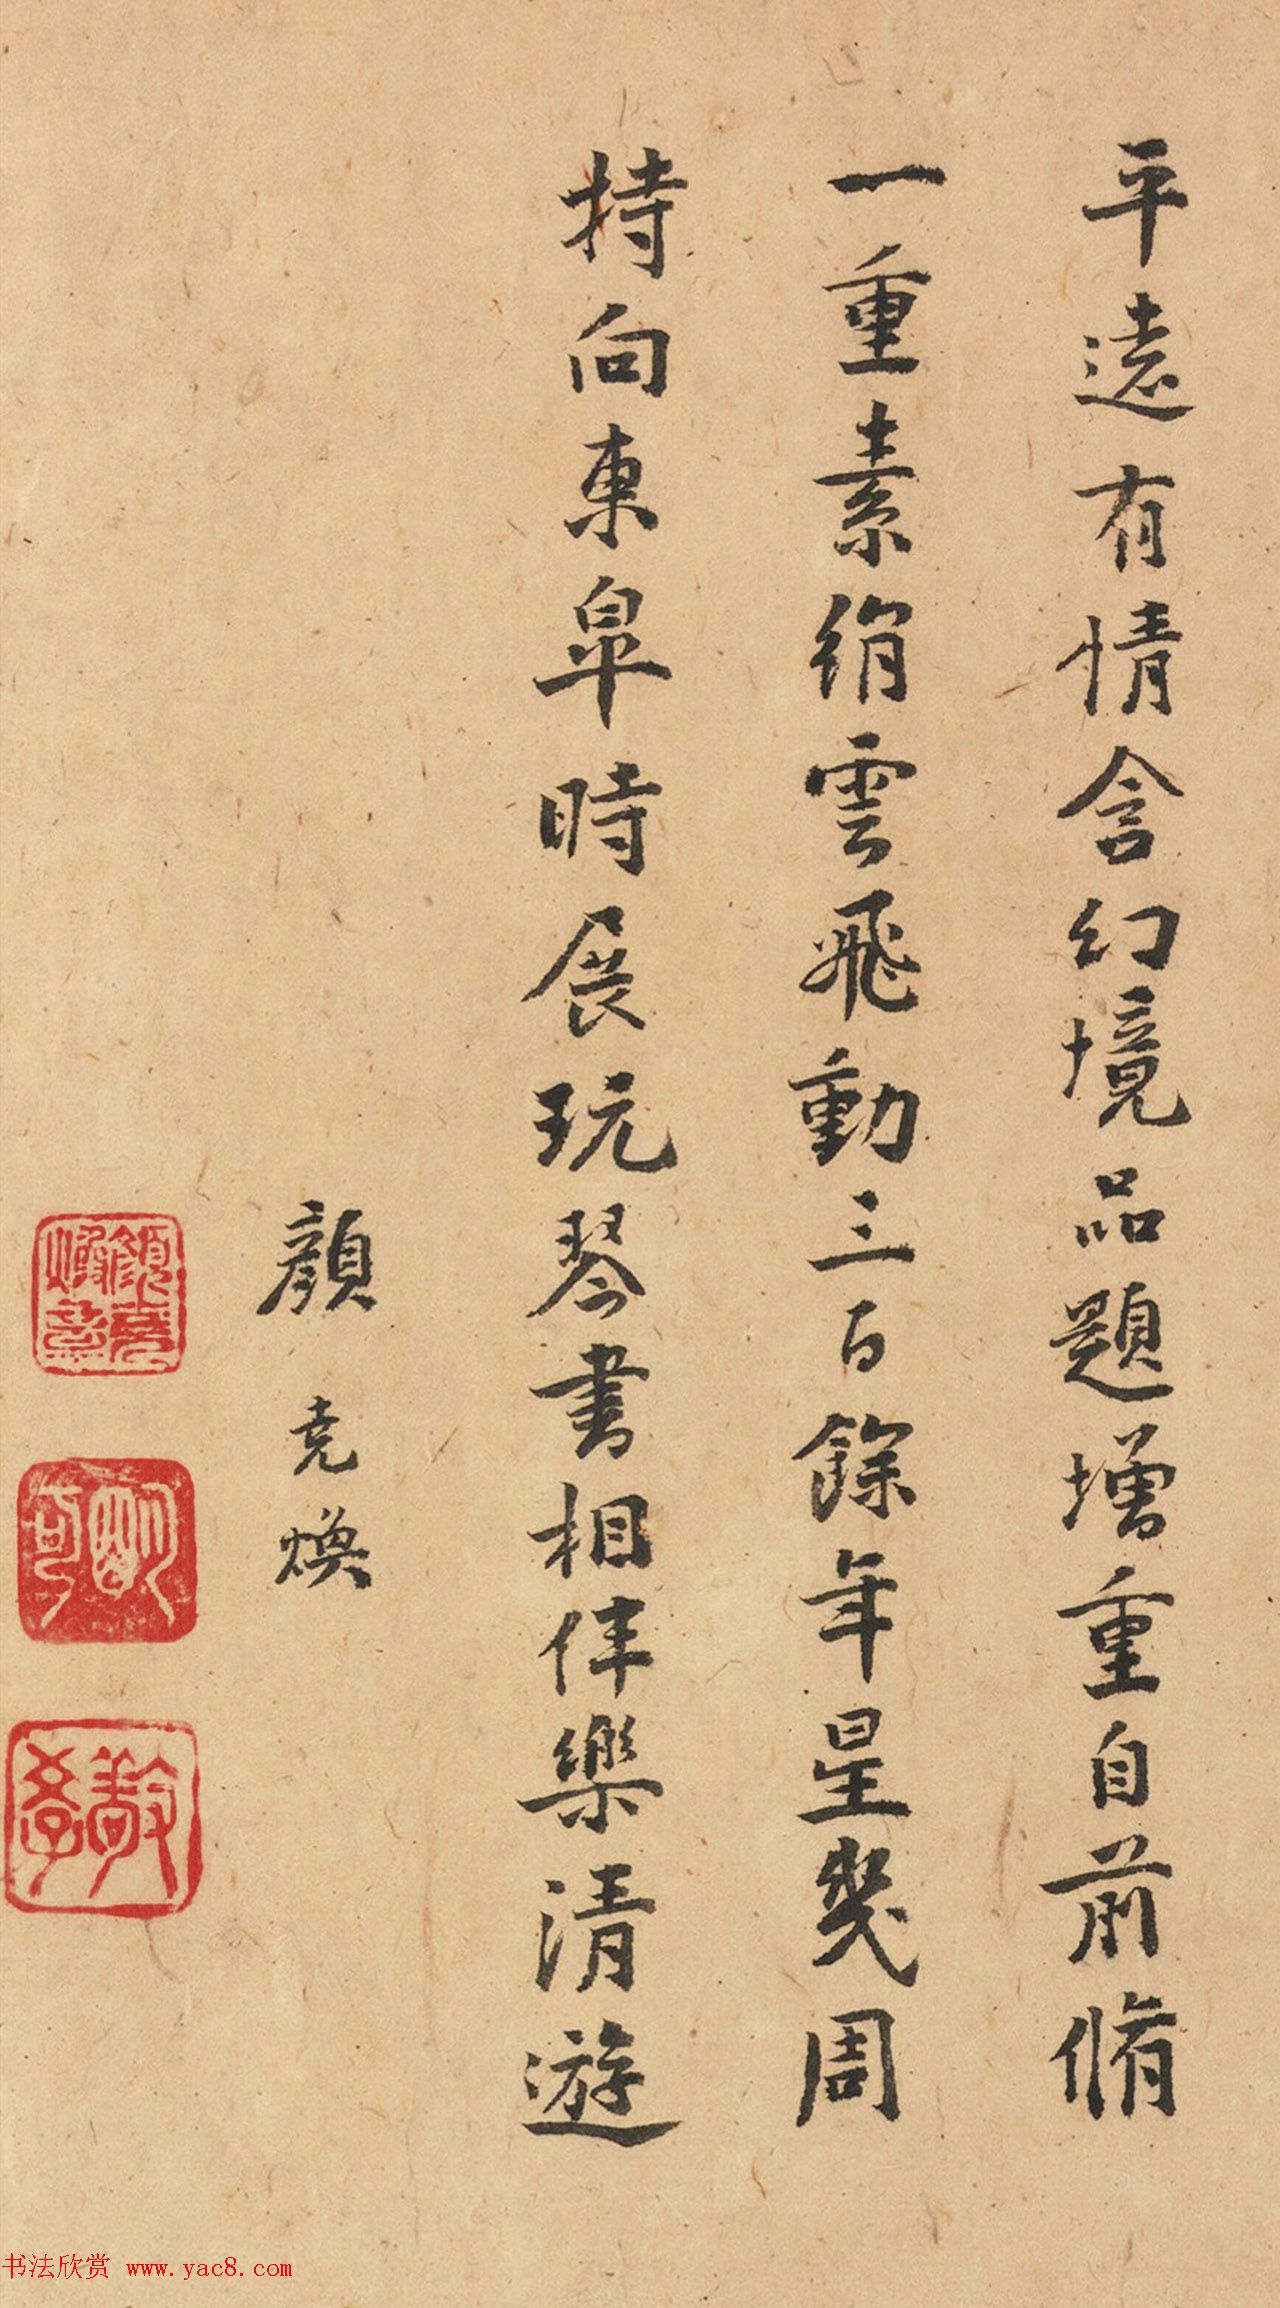 平遠有情含幻境品題增重自前脩
一重素絹雲飛動三百餘年星幾周
持向東皐時展玩琴書相伴樂清遊
顏堯煥
書法欣赏 www.yac8.com